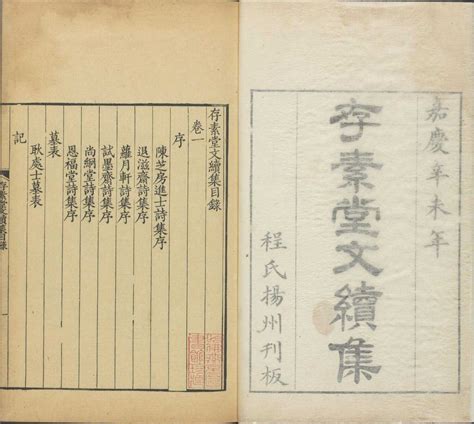 嘉慶辛未年
存素堂文續集
程氏揚州刊板
存素堂文續集目錄
卷一
序
陳芝房進士詩集序
退滋齋詩集序
蘿月軒詩集序
試墨齋詩集序
尚絅堂詩集序
恩福堂詩集序
墓表
耿處士墓表
記